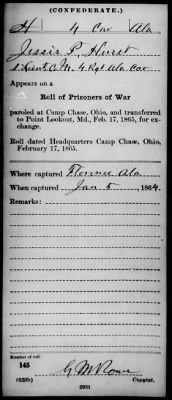 (CONFEDERATE.)
H 4 Cav Ala
Jessie P. Hurst
2 Lieut, Co. M, 4 Regt Ala Cav
Appears on a
Roll of Prisoners of War
paroled at Camp Chase, Ohio, and transferred
to Point Lookout, Md., Feb. 17, 1865, for ex-
change.
Roll dated Headquarters Camp Chase, Ohio,
February 17, 1865.
Where captured Florence Ala
When captured Jan 5, 1864.
Remarks:
Number of roll:
145
(639b) G M Rowe
Copyist.
2931